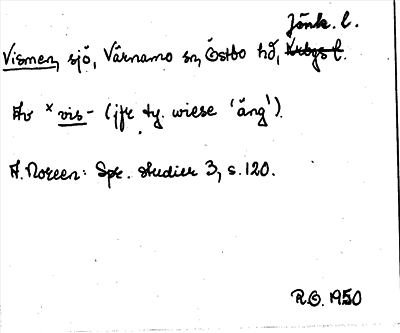 Jönk. l.
Vismen, sjö, Värnamo sn, Östbo hd, Krbgs l.
Av *vis- (jfr ty. wiese 'äng').
A. Noreen: Spr. studier 3, s. 120.
R.O. 1950